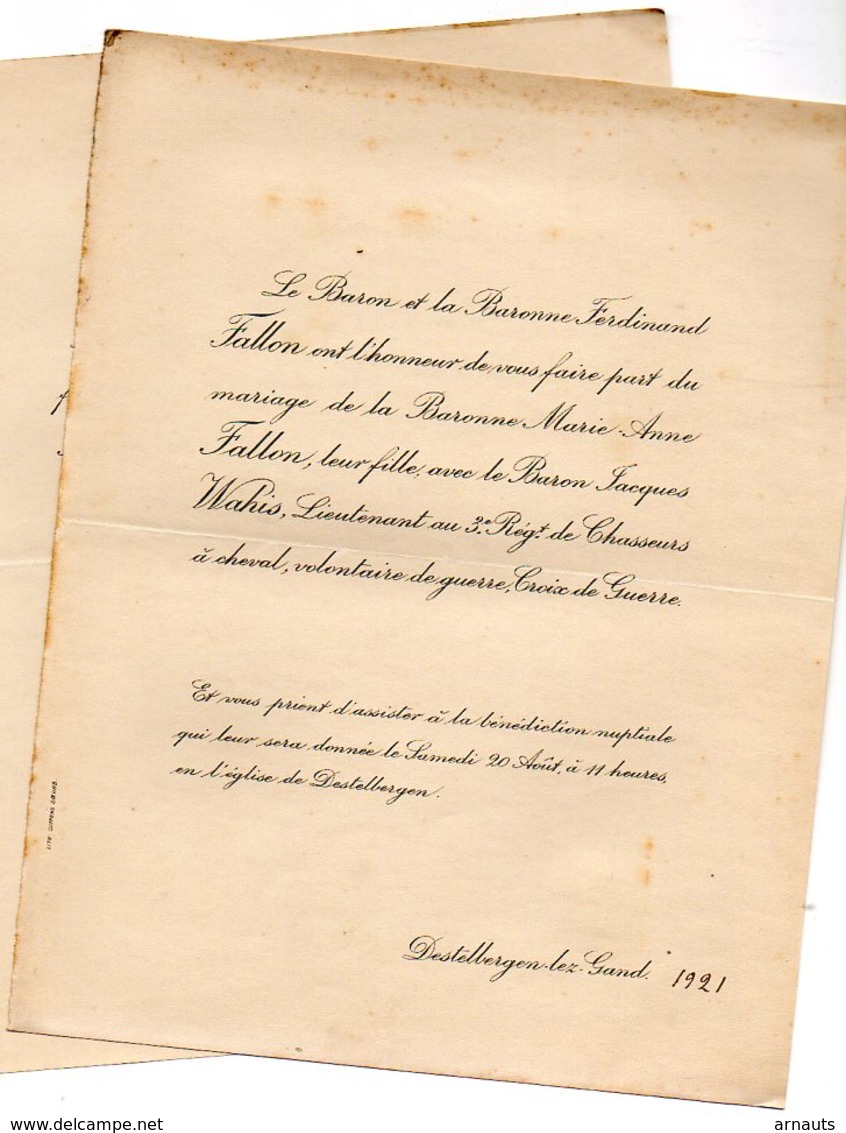 Le Baron et la Baronne Ferdinand
Fallon ont l'honneur de vous faire part du
mariage de la Baronne Marie-Anne
Fallon, leur fille, avec le Baron Jacques
Wahis, Lieutenant au 3e Régt. de Chasseurs
à cheval, volontaire de guerre, Croix de Guerre.
Et vous prient d'assister à la bénédiction nuptiale
qui leur sera donnée le Samedi 20 Août, à 11 heures,
en l'église de Destelbergen.
Destelbergen-lez-Gand. 1921
delcampe.net
arnauts